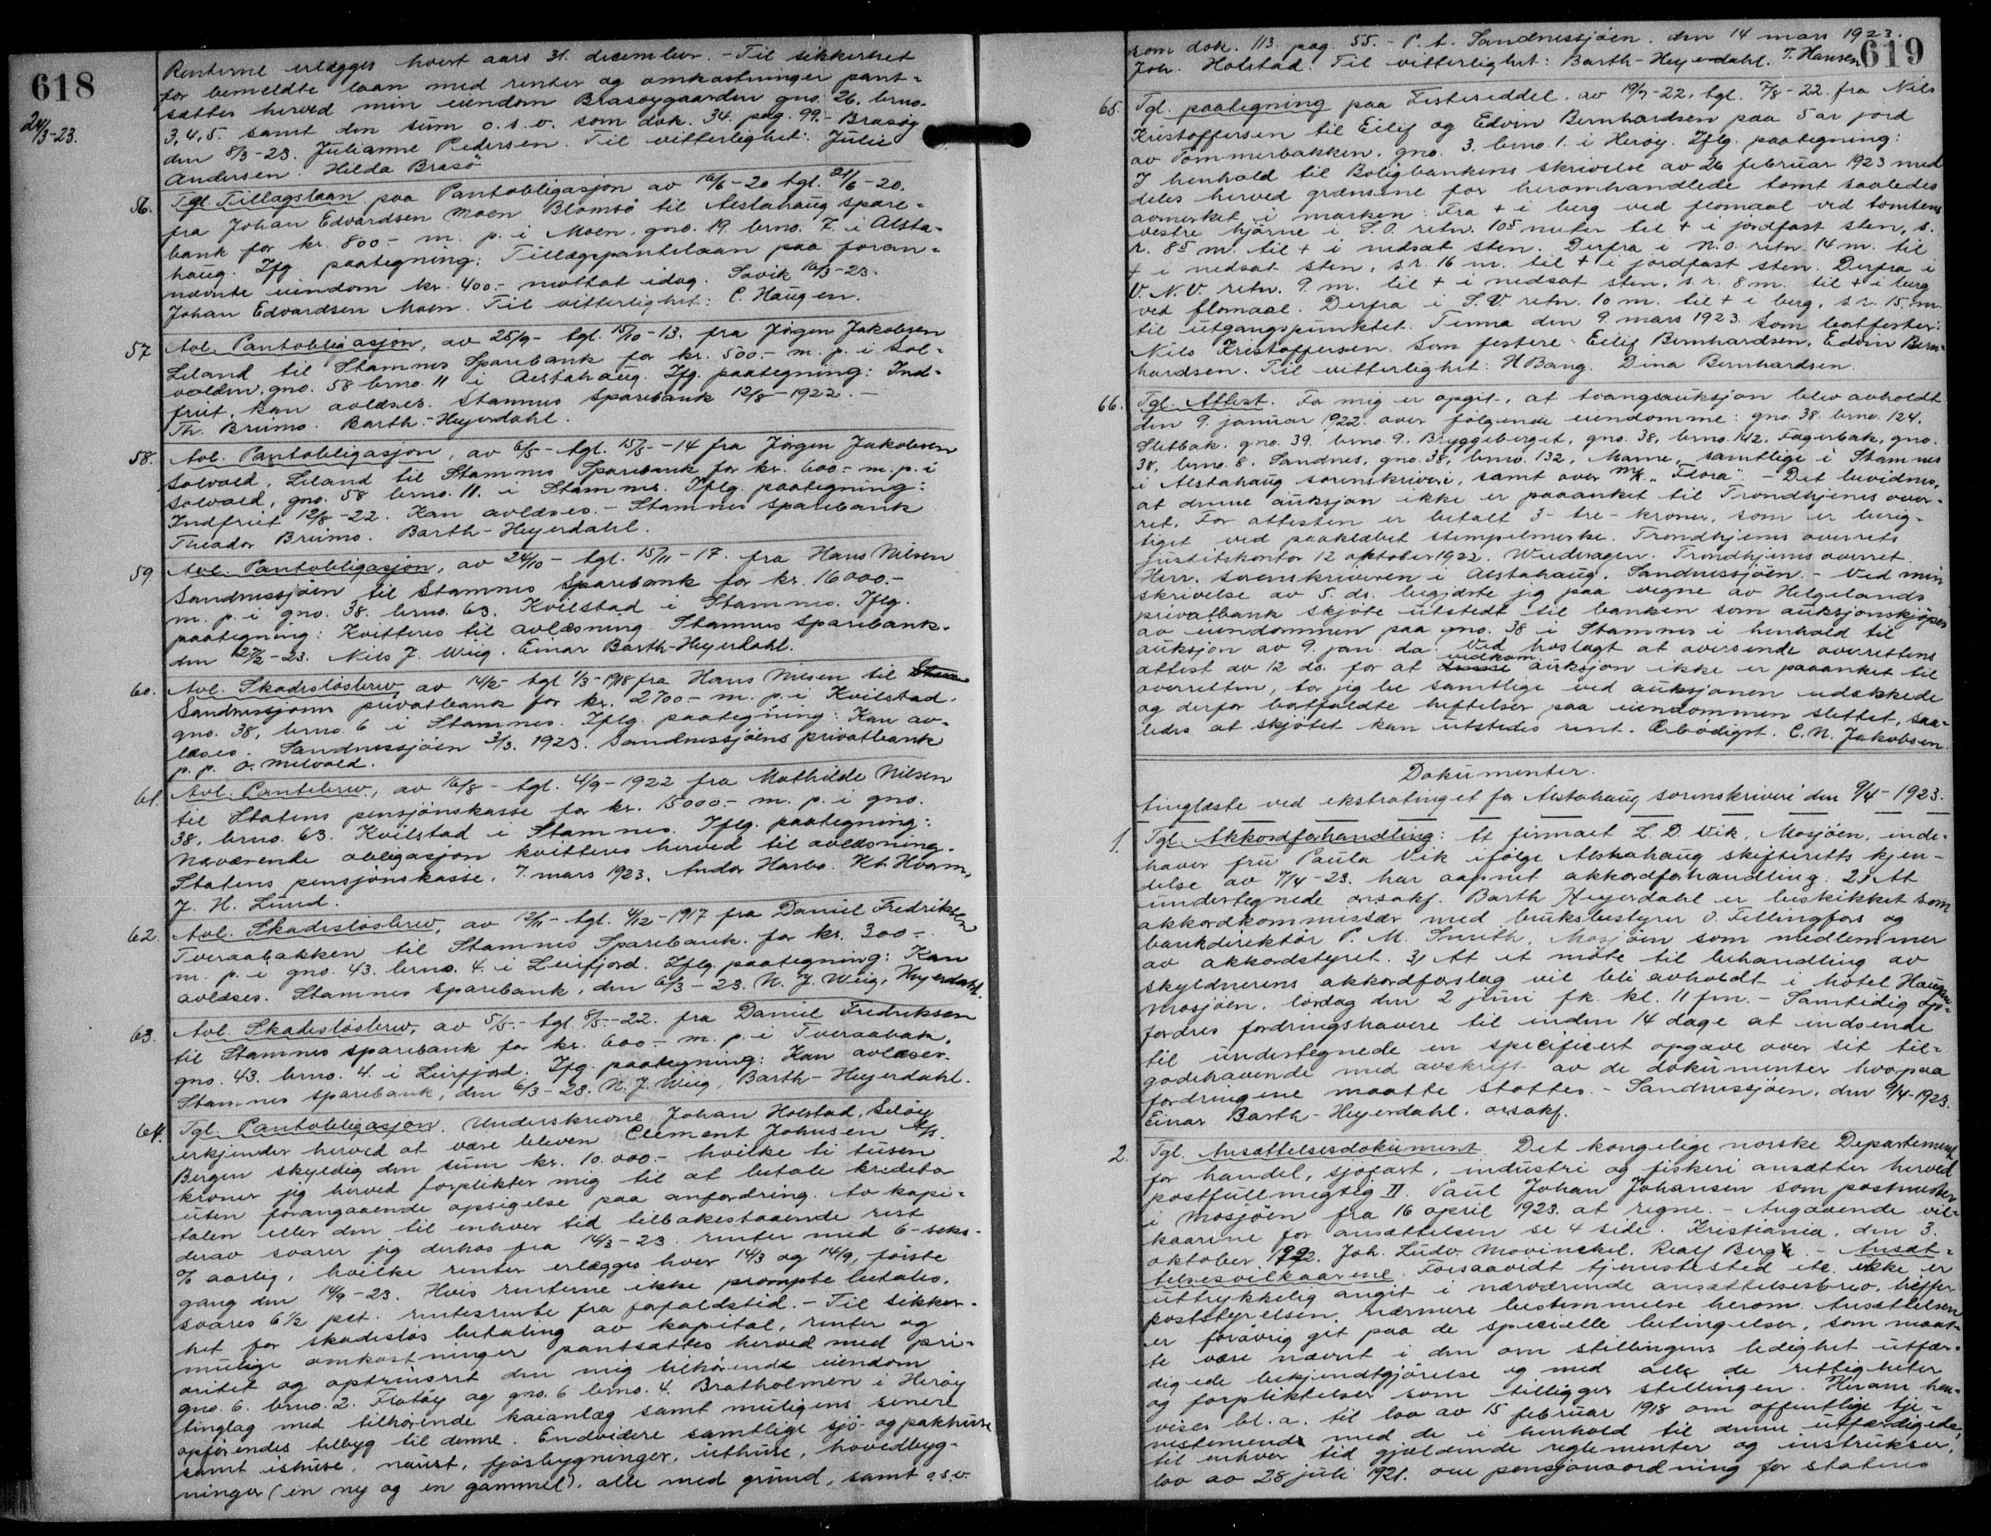 618
24/3-23.
Renterne erlægges hvert aars 31. december. - Til sikkerhet
for bemeldte laan med renter og omkostninger pant-
sættes herved min eiendom Brasøygaarden gno. 26. brno.
3, 4, 5 samt den sum o.s.v. som dok. 34. pag. 99. - Brasøy
den 8/3-23. Julianne Pedersen. Til vitterlighet: Julie
Andersen. Hilda Brasø
56. Tgl. Tillægslaan paa Pantobligasjon av 16/6-20 tgl. 21/6-20.
fra Johan Edvardsen Moen Blomsø til Alstahaug spare-
bank for kr. 800.- m. p. i Moen, gno. 19. brno. 7. i Alsta-
haug. Ifg. paategning: Tillægspantelaan paa foran-
nævnte eiendom kr. 400.- mottat idag. Søvik 16/3-23.
Johan Edvardsen Moen. Til vitterlighet: C. Haugen.
57. Avl. Pantobligasjon, av 25/9- tgl. 15/10-13. fra Jørgen Jakobsen
Leland til Stamnes Sparebank for kr. 500.- m. p. i Sol-
volden, gno. 58 brno. 11 i Alstahaug. Ifg. paategning: Ind-
friet, kan avlæses. Stamnes Sparebank 12/8-1922. -
Th. Brumo. Barth-Heyerdahl.
58. Avl. Pantobligasjon, av 6/5- tgl. 15/5-14 fra Jørgen Jakobsen
Solvold, Leland til Stamnes Sparebank for kr. 600.- m. p. i
Solvold, gno. 58 brno. 11. i Stamnes. Iflg. paategning:
Indfriet 12/8-22. Kan avlæses. - Stamnes sparebank
Theodor Breimo. Barth-Heyerdahl.
59. Avl. Pantobligasjon, av 24/10- tgl. 15/11-17. fra Hans Nilsen
Sandnessjøen til Stamnes Sparebank for kr. 16000.-
m. p. i gno. 38. brno. 63. Kvilstad i Stamnes. Iflg.
paategning: Kvitteres til avlæsning. Stamnes Sparebank.
den 27/2-23. Nils J. Wiig. Einar Barth-Heyerdahl.
60. Avl. Skadesløsbrev, av 14/2- tgl 1/3-1918 fra Hans Nilsen til Stam
Sandnessjøens privatbank for kr. 2700.- m. p. i Kvilstad.
gno. 38, brno. 6 i Stamnes. Iflg. paategning: Kan av-
læses. Sandnessjøen 3/3. 1923. Sandnessjøens privatbank
p. p. O. Melvold.
61. Avl. Pantebrev, av 16/8- tgl. 4/9-1922 fra Mathilde Nilsen
til Statens pensjonskasse for kr. 15000.- m. p. i gno.
38, brno. 63. Kvilstad i Stamnes. Iflg. paategning:
Nærværende obligasjon kvitteres herved til avlæsning.
Statens pensjonskasse. 7. mars 1923. Andor Harbo. Kr. Hvam.
J. H. Lund.
62. Avl. Skadesløsbrev, av 12/11- tgl. 4/12-1917 fra Daniel Fredriksen
Tveraabakken til Stamnes Sparebank. for kr. 300.-.
m. p. i gno. 43. brno. 4. i Leirfjord. Iflg. paategning: Kan
avlæses. Stamnes sparebank, den 6/3-23. N. J. Wiig, Heyerdahl.
63. Avl. Skadesløsbrev, av 5/5- tgl. 8/5-22. fra Daniel Fredriksen
til Stamnes sparebank for kr. 600.- m. p. i Tveraabak.
gno. 43. brno. 4. i Leirfjord. Ifg. paategning: Kan avlæses.
Stamnes sparebank, den 6/3-23. N. J. Wiig, Barth-Heyerdahl.
64. Tgl. Pantobligasjon. Underskrevne Johan Holstad, Seløy
erkjender herved at være bleven Clement Johnsen A/S.
Bergen skyldig den sum kr. 10.000.- hvilke ti tusen
kroner jeg herved forplikter mig til at betale kreditor
uten forangaaende opsigelse paa anfordring. Av kapi-
talen eller den til enhver tid tilbakestaaende rest
derav svarer jeg derhos fra 14/3-23. renter med 6-seks-
% aarlig, hvilke renter erlægges hver 14/3 og 14/9, første
gang den 14/9-23. Hvis renterne ikke prompte betales,
svares 6½ pct. rentesrente fra forfaldstid. - Til sikker-
het for skadesløs betaling av kapital, renter og
mulige omkostninger pantsættes herved med pri-
oritet og optrinsret den mig tilhørende eiendom
gno. 6. brno. 2. Flotøy og gno. 6 brno. 4. Bratholmen i Herøy
tinglag med tilhørende kaianlæg samt muligens senere
opførendes tilbyg til denne. Endvidere samtlige sjø- og pakhuse
samt ishuse, naust, fjøsbygninger, uthuse, hovedbyg-
ninger (en ny og en gammel), alle med grund, samt o.s.v.
619
som dok. 113. pag. 55. - P. t. Sandnessjøen, den 14 mars 1923.
Joh. Holstad. Til vitterlighet: Barth-Heyerdahl. T. Hansen
65. Tgl. paategning paa Festeseddel, av 19/7-22, tgl. 7/8-22. fra Nils
Kristoffersen til Eilif og Edvin Bernhardsen paa 5 ar jord
av Tømmerbakken, gno. 3. brno. 1. i Herøy. Iflg. paategning:
I henhold til Boligbankens skrivelse av 26 februar 1923 med
deles herved grænsene for heromhandlede tomt saaledes
avmerket i marken: Fra + i berg ved flomaal ved tomtens
vestre hjørne i S.O. retn. 105 meter til + i jordfast sten, s.
r. 85 m. til + i nedsat sten. Derfra i N.O. retn. 14 m. til
+ i nedsat sten, s.r. 16 m. til + i jordfast sten. Derfra i
V.N.V. retn. 9 m. til + i nedsat sten, s. r. 8 m. til + i berg
ved flomaal. Derfra i S.V. retn. 10 m. til + i berg, s.r. 15. m.
til utgangspunktet. Tenna den 9 mars 1923. Som bortfester:
Nils Kristoffersen. Som festere: Eilif Bernhardsen, Edvin Bern-
hardsen. Til vitterlighet: H Bang. Dina Bernhardsen.
66. Tgl. Attest. For mig er opgit, at tvangsauksjon blev avholdt
den 9. januar 1922. over følgende eiendomme: gno. 38. brno. 124.
Sletbak, gno. 39. brno. 9. Bryggeberget, gno. 38, brno. 142. Fagerbak, gno.
38, brno. 8. Sandnes, gno. 38, brno. 132, Marne, samtlige i Stamnes
i Alstahaug sorenskriveri, samt over m/k. "Flora" - Det bevidnes,
at denne auksjon ikke er paaanket til Trondhjems over-
ret. For attesten er betalt 3- tre- kroner, som er berig-
tiget ved paaklæbet stempelmerke. Trondhjems overrets
justitskontor 12 oktober 1922. Wiedvagen. Trondhjems overret
Herr. Sorenskriveren i Alstahaug. Sandnessjøen. - Ved min
skrivelse av 5. ds. begjærte jeg paa vegne av Helgelands
privatbank skjøte utstedt til banken som auksjonskjøper
av eiendommen paa gno. 38 i Stamnes i henhold til
auksjon av 9. jan. da. Ved hoslagt at oversende overrettens
attest av 12 ds. for at vedkom. auksjon ikke er paaanket til
overretten, tør jeg be samtlige ved auksjonen udækkede
og derfor bortfaldte heftelser paa eiendommen slettet, saa-
ledes at skjøtet kan utstedes rent. Ærbødigst. C. N. Jakobsen.
Dokumenter.
tinglæste ved ekstratinget for Alstahaug sorenskriveri den 9/4-1923.
1. Tgl. Akkordforhandling: At firmaet L. D. Vik, Mosjøen, inde-
haver fru Paula Vik ifølge Alstahaug skifteretts kjen-
delse av 7/4-23. har aapnet akkordforhandling. 2) At
undertegnede orsakf. Barth Heyerdahl er beskikket som
akkordkommissær med bruksbestyrer O. Fellingfors og
bankdirektør P. M. Smith, Mosjøen som medlemmer
av akkordstyret. 3) At et møte til behandling av
skyldnerens akkordforslag vil bli avholdt i hotel Haugen
Mosjøen, lørdag den 2 juni fk. kl. 11 fm. - Samtidig op-
fordres fordringshavere til inden 14 dage at indsende
til undertegnede en specificert opgave over sit til-
godehavende med avskrift av de dokumenter hvorpaa
fordringene maatte støttes. - Sandnessjøen, den 9/4-1923.
Einar Barth-Heyerdahl, orsakf.
2. Tgl. Ansættelsesdokument. Det kongelige norske Departement
for handel, sjøfart, industri og fiskeri ansætter herved
postfullmegtig II. Paul Johan Johansen som postmester
i Mosjøen fra 16 april 1923. at regne. - Angaaende vil-
kaarene for ansættelsen se 4 side. Kristiania, den 3.
oktober 1922. Joh. Ludv. Mowinckel. Realf Berg. - Ansæt-
telsesvilkaarene. Forsaavidt tjenestested etc. ikke er
uttrykkelig angit i nærværende ansættelsesbrev, træffer
poststyrelsen nærmere bestemmelse herom. Ansættelsen
er forøvrig git paa de specielle betingelser, som maat-
te være nævnt i den om stillingens ledighet utfær-
digede bekjendtgjørelse og med alle de rettigheter
og forpliktelser som tilligger stillingen. Herom hen-
vises bl. a. til lov av 15 februar 1918 om offentlige tje-
nestemend med de i henhold til denne utfærdigede,
til enhver tid gjældende reglementer og instrukser,
lov av 28 juli 1921. om pensjonsordning for statens